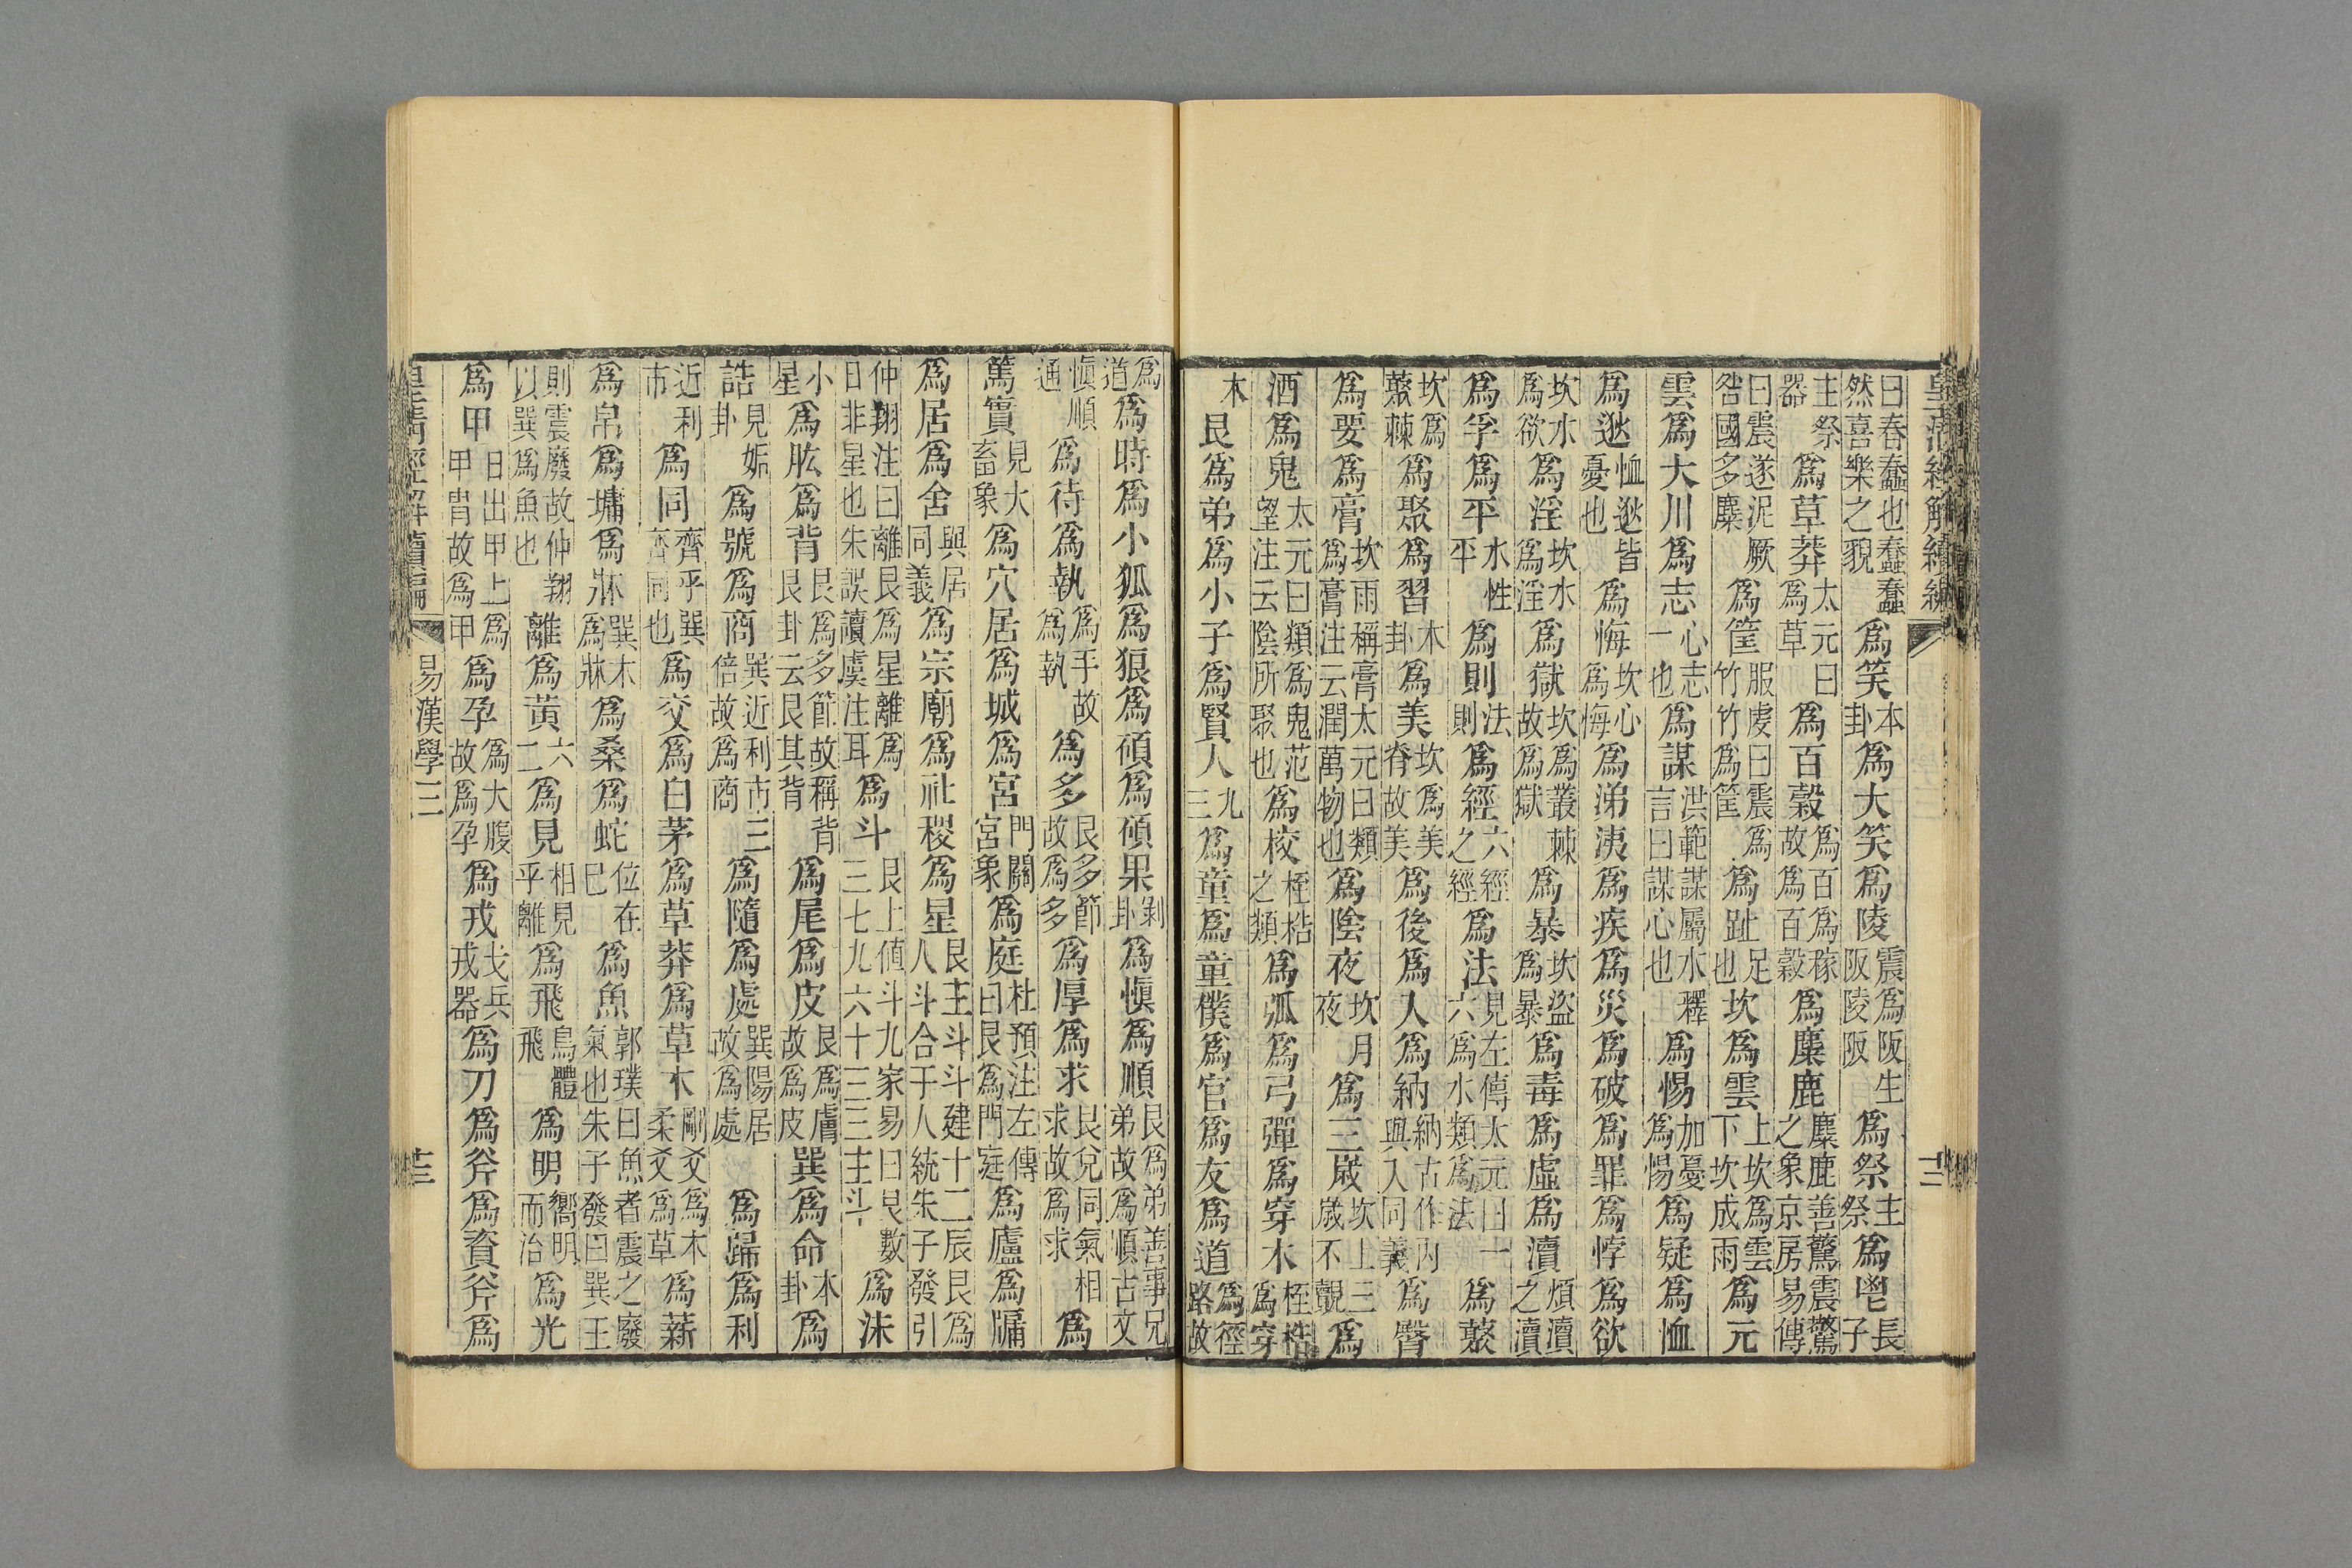 皇清經解續編
曰春蠢也蠢蠢然喜樂之貌爲笑本卦爲大笑爲陵震爲阪阪生陵阪爲祭主祭爲鬯長子
主祭器爲草莽太元曰爲草爲百穀爲百爲稼故爲百穀爲麋鹿麋鹿善驚震驚之象京房易傳
曰震遂泥厥咎國多麋爲筐服虔曰震爲竹竹爲筐爲趾足也坎爲雲上坎爲雲下坎成雨爲元
雲爲大川爲志心志一也爲謀洪範謀屬水釋言曰謀心也爲惕加憂爲惕爲疑爲恤
爲逖恤逖皆憂也爲悔坎心爲悔爲涕洟爲疾爲災爲破爲罪爲悖爲欲
坎水爲欲爲淫坎水爲淫爲獄坎爲叢棘故爲獄爲暴坎盜爲暴爲毒爲虛爲瀆煩瀆之瀆
爲孚爲平水性平爲則法則爲經六經之經爲法見左傳太元曰一六爲水類爲法爲蒺
坎爲蒺棘爲聚爲習本卦爲美坎爲美脊故美爲後爲入爲納納古作内與入同義爲臀
爲要爲膏坎雨稱膏太元曰類爲膏注云潤萬物也爲陰夜坎月夜爲三歲坎上三歲不覿爲
酒爲鬼太元曰類爲鬼范望注云陰所聚也爲校桎梏之類爲弧爲弓彈爲穿木桎梏爲穿
木艮爲弟爲小子爲賢人九三爲童爲童僕爲官爲友爲道爲徑路故
爲道爲時爲小狐爲狼爲碩爲碩果剝卦爲愼爲順艮爲弟善事兄弟故爲順古文
愼順通爲待爲執爲手故爲執爲多艮多節故爲多爲厚爲求艮兌同氣相求故爲求爲
篤實見大畜象爲穴居爲城爲宮門闕宮象爲庭杜預注左傳曰艮爲門庭爲廬爲牖
爲居爲舍與居同義爲宗廟爲社稷爲星艮主斗斗建十二辰艮爲人斗合于人統朱子發引
仲翔注曰離艮爲星離爲日非星也朱誤讀虞注耳爲斗艮上値斗九家易曰艮數三七九六十三三主斗爲沬
小星爲肱爲背艮爲多節故稱背艮卦云艮其背爲尾爲皮艮爲膚故爲皮巽爲命本卦爲
誥見姤卦爲號爲商巽近利市三倍故爲商爲隨爲處巽陽居故爲處爲歸爲利
近利市爲同齊乎巽齊同也爲交爲白茅爲草莽爲草木剛爻爲木柔爻爲草爲薪
爲帛爲墉爲牀巽木爲牀爲桑爲蛇位在巳爲魚郭璞曰魚者震之廢氣也朱子發曰巽王
則震廢故仲翔以巽爲魚也離爲黃六二爲見相見乎離爲飛鳥體飛爲明嚮明而治爲光
爲甲日出甲上爲甲冑故爲甲爲孕爲大腹故爲孕爲戎戈兵戎器爲刀爲斧爲資斧爲
皇清經解續編 易漢學三 十三